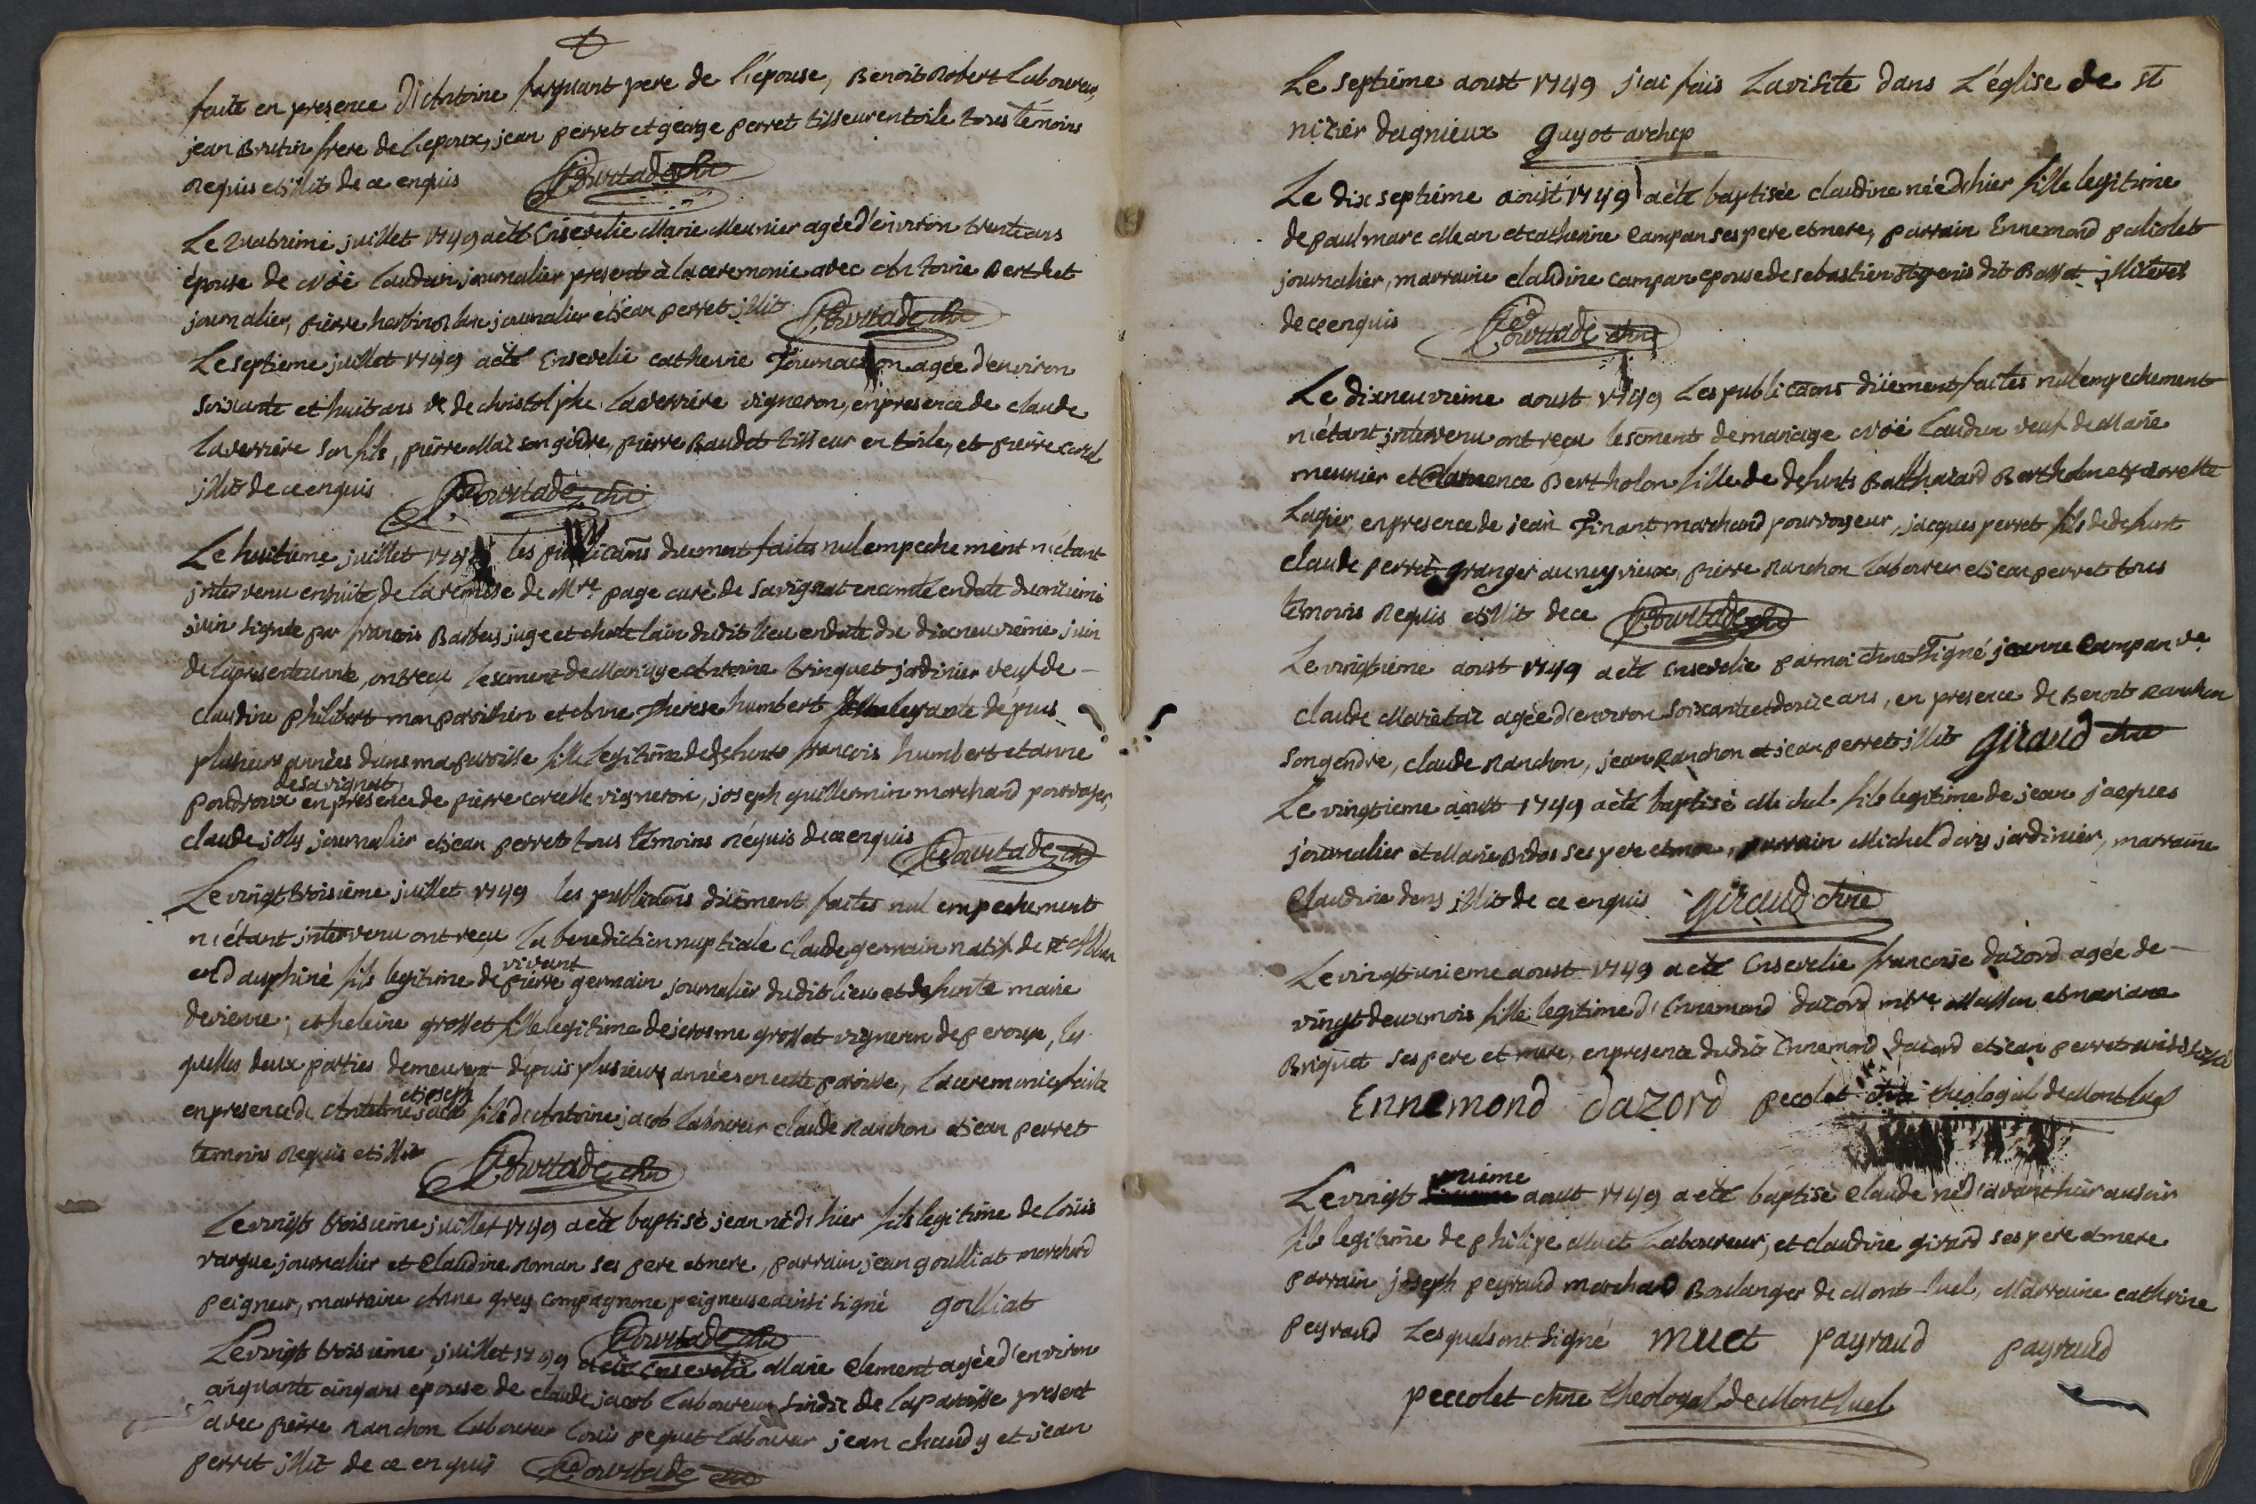 faite en presence d'Antoine pere de l'epouse, Benoit Robert Laboureur,
jean Brutin frere de l'epoux, jean perret et george perret tisseur en toile tous témoins
Requis et illit de ce enquis Courtade chn
Le quatrieme juillet 1749 a été Ensevelie Marie Meunier agée d'environ trente ans
épouse de Noé Laudun journalier present à la ceremonie avec Antoine Berthet
journalier, pierre journalier et jean perret illit Courtade chn
Le septieme juillet 1749 a été Ensevelie catherine agée d'environ
soixante et huit ans ve de christolphe Laverriere vigneron, en presence de claude
Laverriere son fils, pierre Maz son gendre, pierre Baudet tisseur en toile, et pierre
illit de ce enquis Courtade chn
Le huitieme juillet 1749 les publicaons duement faites nul empechement n'etant
intervenu ensuite de la remise de Mre page curé de Savignat en date du onzieme
juin signée par francois Barbers juge et chatelain dudit lieu en date du dixneuvieme juin
de la presente année, ont reçu le scment de Mariage Antoine trinquet jardinier veuf de
claudine philibert mon paroissien et Anne Therese humbert depuis
plusieurs années dans ma paroisse fille legitime de defunts francois humbert et anne
de savignat
poudroux en presence de pierre corcelle vigneron, joseph guillermin marchand
claude joly journalier et jean perret tous témoins réquis de ce enquis Courtade chn
Le vingt troisieme juillet 1749 les publicaons duement faites nul empechement
n'étant intervenu ont reçu la benediction nuptiale claude germain natif de st
vivant
en dauphiné fils legitime de pierre germain journalier dudit lieu et defunte marie
devienne; et heleine grosset fille legitime de jerosme grosset vigneron de perouse, les
quelles deux parties demeurent depuis plusieurs années en cette paroisse, la ceremonie faite
et joseph
en presence de Antelme jacob fils d'Antoine jacob Laboureur claude Ranchon et jean perret
temoins requis et illit Courtade chn
Le vingt troisieme juillet 1749 a été baptisé jean né d'hier fils legitime de Loüis
vargue journalier et Claudine Roman ses pere et mere, parrain jean goulliat marchand
peigneur, marraine Anne grey compagnone peigneuse ainsi signé goulliat
Courtade chn
Le vingt troisieme juillet 1749 a été Ensevelie Marie Clement agée d'environ
cinquante cinq ans épouse de claude jacob Laboureur sindic de la paroisse present
avec pierre Ranchon Laboureur Loüis peguet Laboureur jean chaudy et jean
perret illit de ce enquis Courtade chn
Le septiéme aoust 1749 j'ai fais La visite dans L'église de st
nizier dagnieux guyot archip
Le dix septiéme aoust 1749 a été baptisée claudine née d'hier fille legitime
de paul marc Mean et catherine Campan ses pere et mere, parrain Ennemond paliolet
journalier, marraine claudine campan epouse de sebastien st genis dit Bassat illiteres
de ce enquis Courtade chn
Le dixneuvieme aoust 1749 Les publicaons düement faites nul empechement
n'étant intervenu ont reçu le scment de mariage Noé Laudun veuf de Marie
meunier et Clemence Bertholon fille de defunts Balthazard Bertholon et pierrette
Lagier, en presence de jean Finant marchand pourvoyeur, jacques perret fils de defunt
claude perret granger au neyvieux, pierre Ranchon Laboureur et jean perret tous
temoins Requis et illit de ce Courtade chn
Le vingtiéme aoust 1749 a été Ensevelie par moi chne signé jeanne Campan ve
claude Marietaz agée d'environ soixante et douze ans, en presence de Benoit Ranchon
son gendre, claude Ranchon, jean Ranchon et jean perret illit Giraud chn
Le vingtieme aoust 1749 a été baptisé Michel fils legitime de jean jacques
journalier et Marie Bidos ses pere et mere, parrain Michel dery jardinier, marraine
Claudine dens illit de ce enquis Giraud chne
Le vingt unieme aoust 1749 a été Ensevelie francoise dazord agée de
vingt deux mois fille legitime d'Ennemond dazord mtre Masson et mariane
Briquet ses pere et mere, en presence dudit Ennemond dazord et jean perret
Ennemond dazord pecolet chne theologal de Montluel
unieme
Le vingt aout 1749 a été baptisé Claude né d'avanthier au soir
fils legitime de philipe Muet Laboureur, et claudine girard ses pere et mere
parrain joseph peyraud marchand Boulanger de Mont-luel, Marraine catherine
peyraud Lesquels ont signé muet payraud payraud
peccolet chne theologal de Montluel